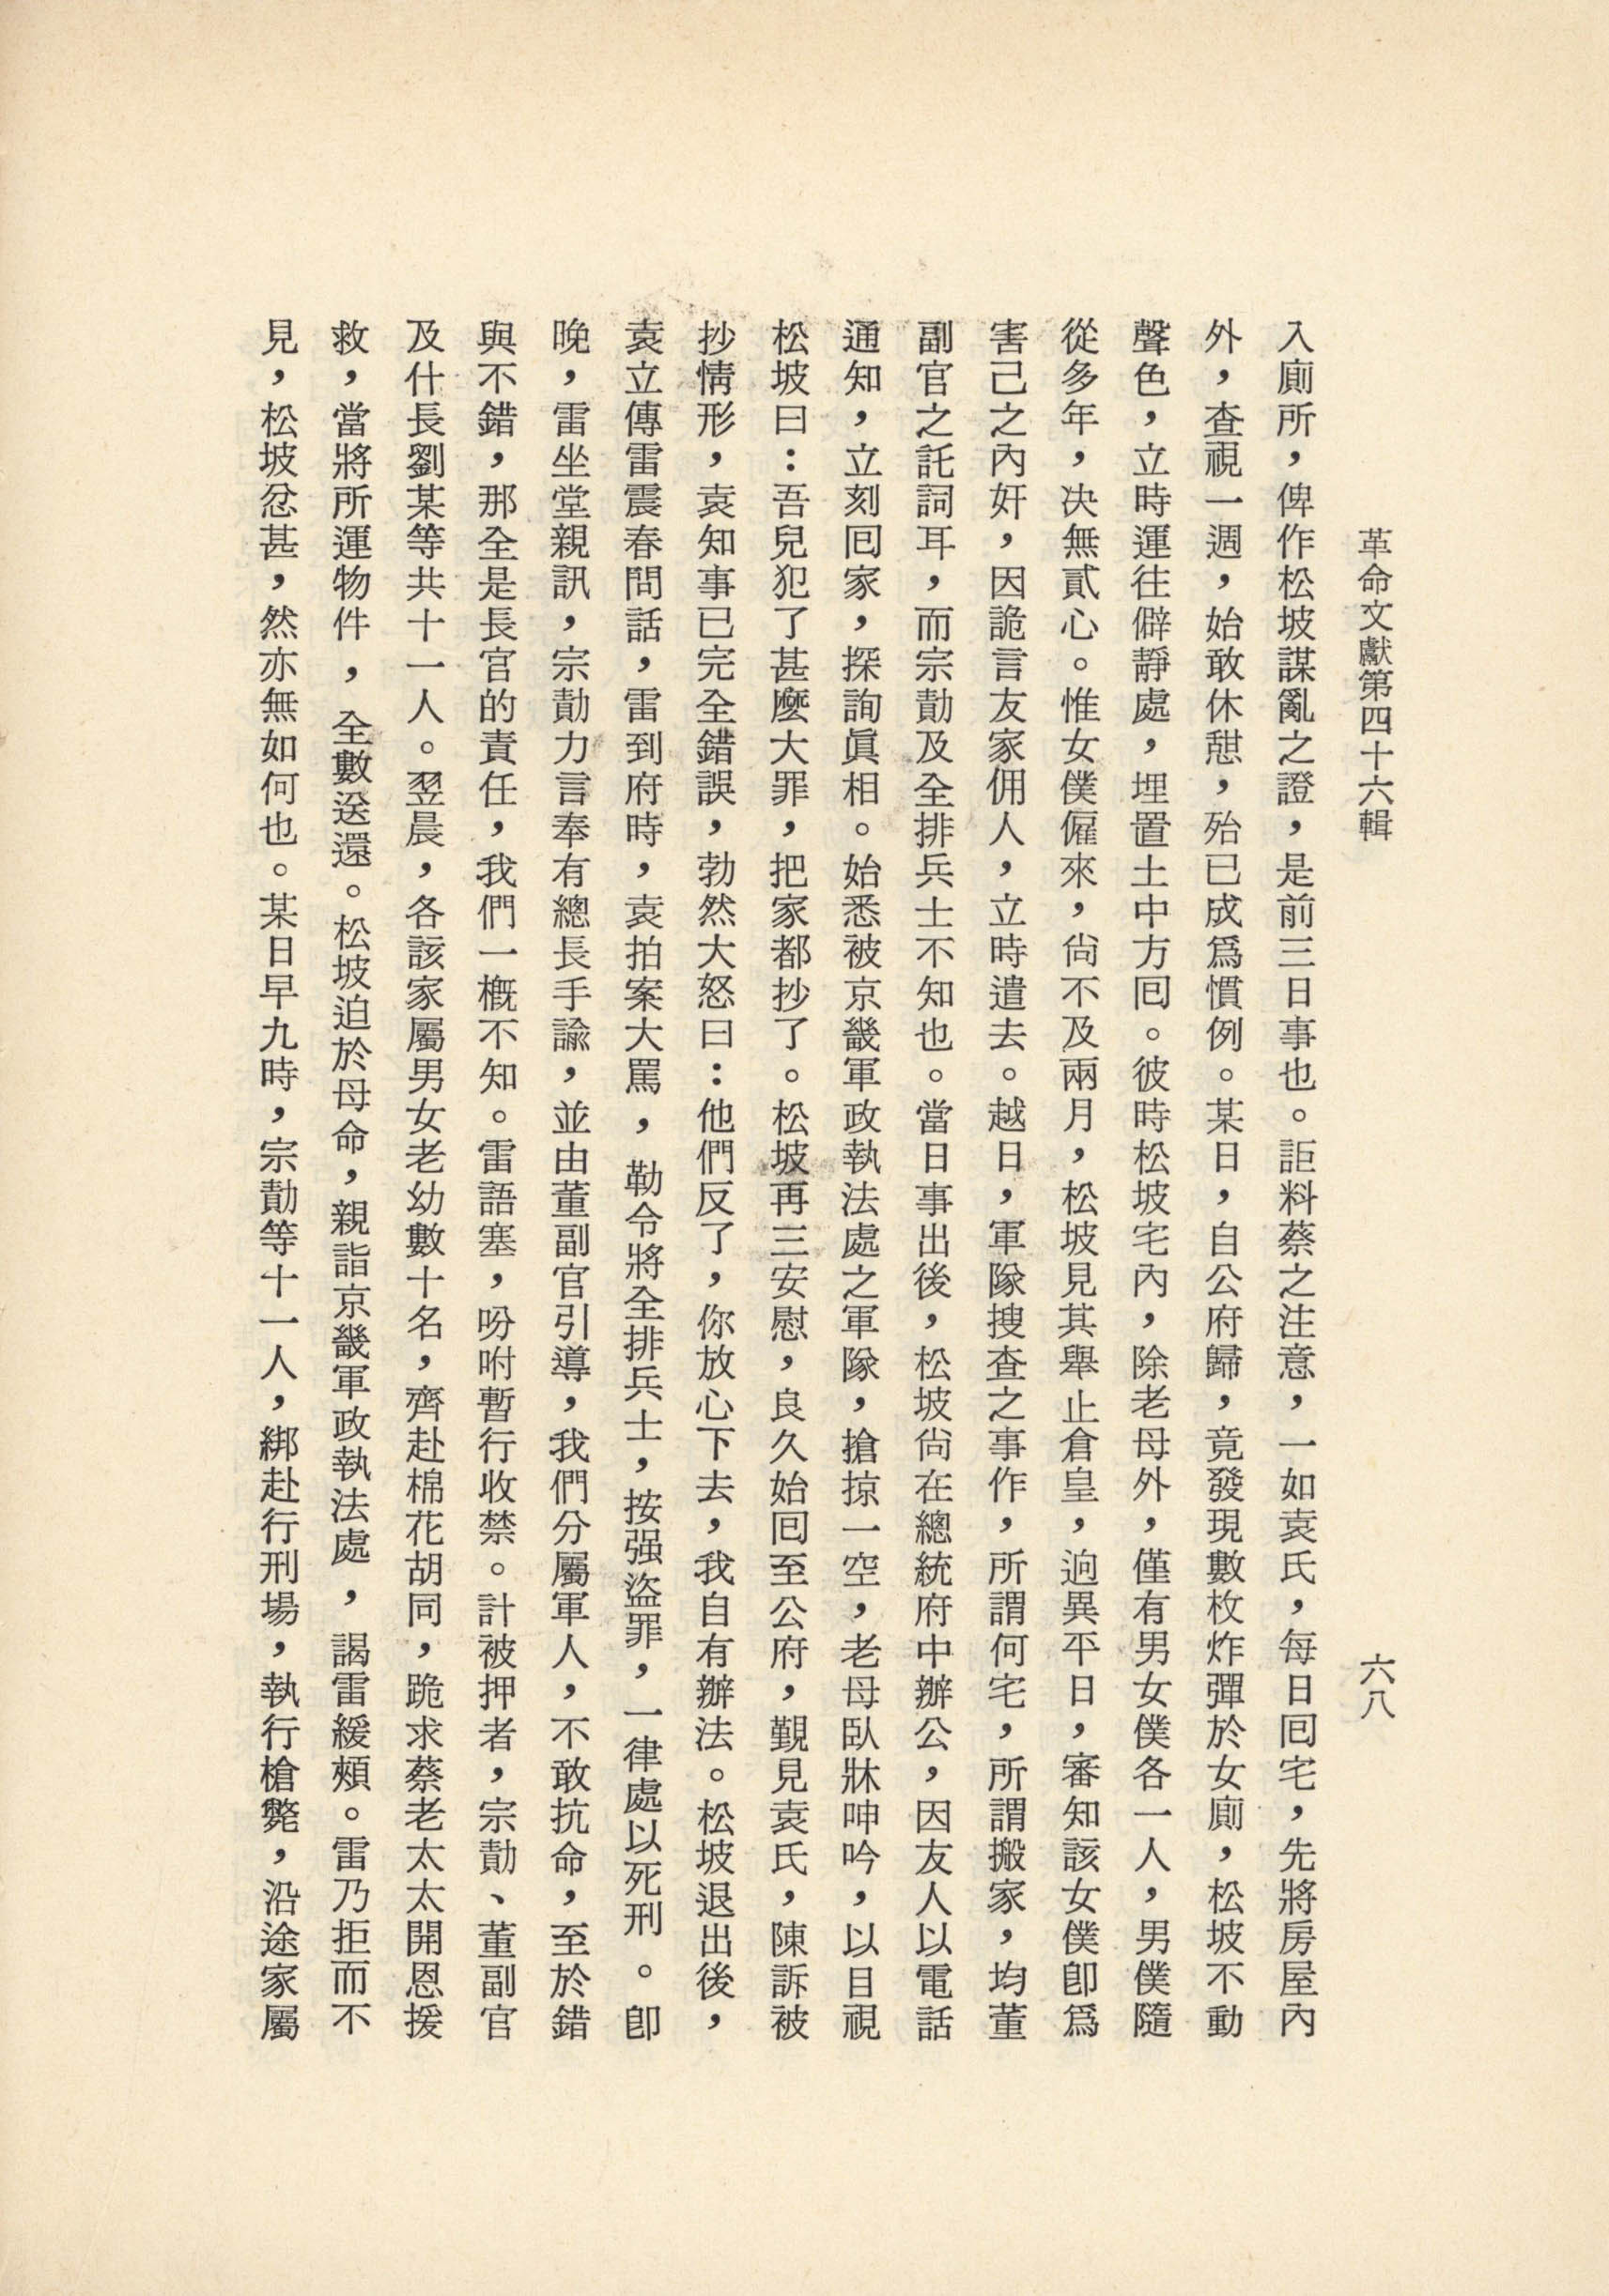 革命文獻第四十六輯
六八
入廁所，俾作松坡謀亂之證，是前三日事也。詎料蔡之注意，一如袁氏，每日囘宅，先將房屋內
外，查視一週，始敢休憇，殆已成爲慣例。某日，自公府歸，竟發現數枚炸彈於女廁，松坡不動
聲色，立時運往僻靜處，埋置土中方囘。彼時松坡宅內，除老母外，僅有男女僕各一人，男僕隨
從多年，决無貳心。惟女僕僱來，尙不及兩月，松坡見其舉止倉皇，逈異平日，審知該女僕卽爲
害己之內奸，因詭言友家佣人，立時遣去。越日，軍隊搜查之事作，所謂何宅，所謂搬家，均董
副官之託詞耳，而宗勣及全排兵士不知也。當日事出後，松坡尙在總統府中辦公，因友人以電話
通知，立刻囘家，探詢眞相。始悉被京畿軍政執法處之軍隊，搶掠一空，老母臥牀呻吟，以目視
松坡曰：吾兒犯了甚麽大罪，把家都抄了。松坡再三安慰，良久始囘至公府，觐見袁氏，陳訴被
抄情形，袁知事已完全錯誤，勃然大怒曰：他們反了，你放心下去，我自有辦法。松坡退出後，
袁立傳雷震春問話，雷到府時，袁拍案大罵，勒令將全排兵士，按强盜罪，一律處以死刑。卽
晚，雷坐堂親訊，宗勣力言奉有總長手諭，並由董副官引導，我們分屬軍人，不敢抗命，至於錯
與不錯，那全是長官的責任，我們一概不知。雷語塞，吩咐暫行收禁。計被押者，宗勣、董副官
及什長劉某等共十一人。翌晨，各該家屬男女老幼數十名，齊赴棉花胡同，跪求蔡老太太開恩援
救，當將所運物件，全數送還。松坡迫於母命，親詣京畿軍政執法處，謁雷緩頰。雷乃拒而不
見，松坡忿甚，然亦無如何也。某日早九時，宗勣等十一人，綁赴行刑場，執行槍斃，沿途家屬